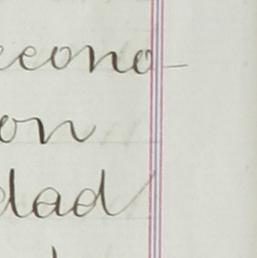 econo-
on
dad